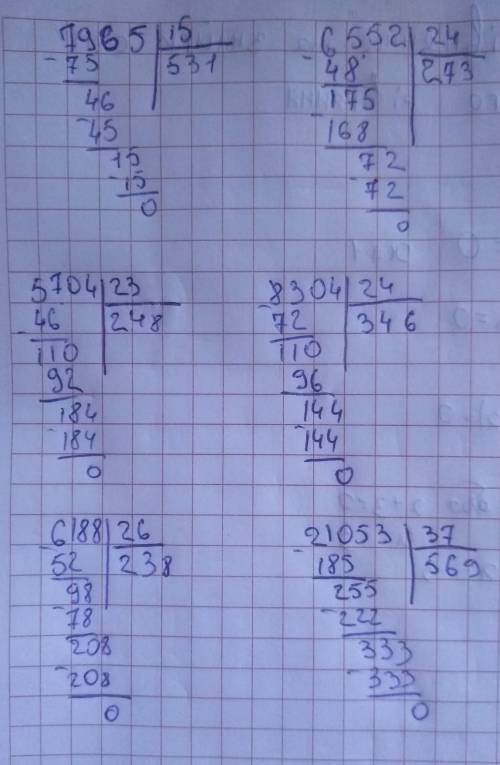 7965 15
- 75 531
46
- 45
15
- 15
0
6552 24
- 48 273
175
- 168
72
- 72
0
5704 23
- 46 248
110
92
184
- 184
0
- 8304 24
72 346
110
96
144
- 144
0
- 6188 26
52 238
98
- 78
208
- 208
0
- 21053 37
185 569
255
- 222
333
- 333
0